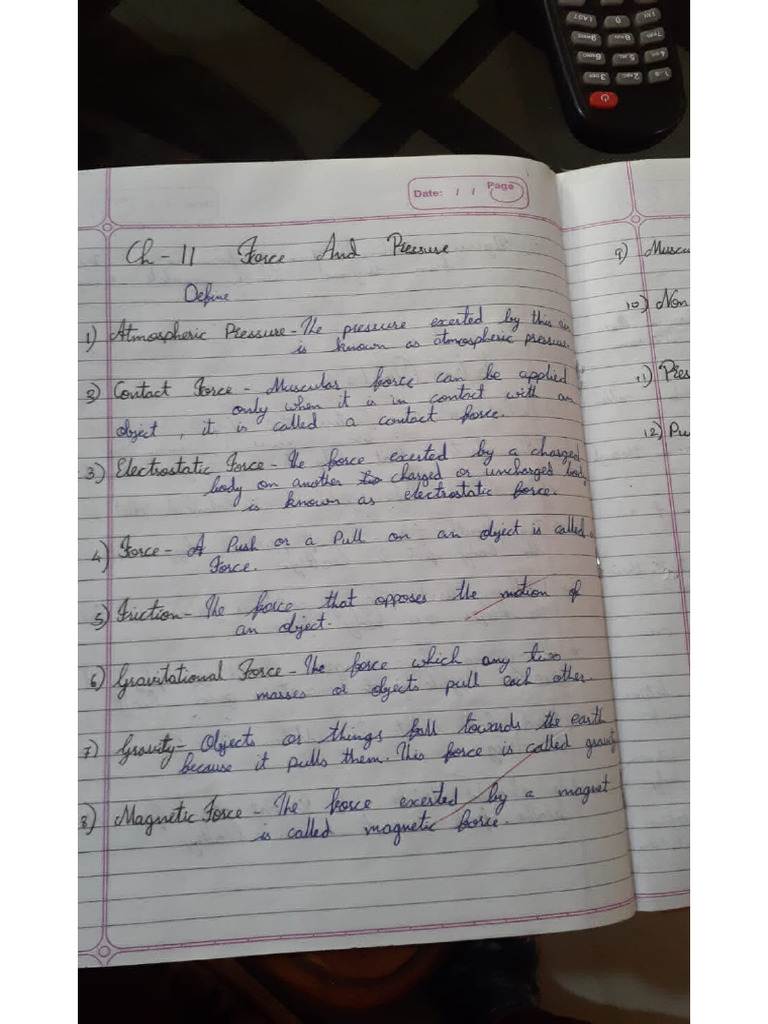 Date: / / Page
Ch - 11 Force And Pressure
Define
1) Atmospheric Pressure - The pressure exerted by this air
is known as atmospheric pressure.
2) Contact Force - Muscular force can be applied
only when it is in contact with an
object, it is called a contact force.
3) Electrostatic Force - The force exerted by a charged
body on another charged or uncharged body
is known as electrostatic force.
4) Force - A Push or a Pull on an object is called a
Force.
5) Friction - The force that opposes the motion of
an object.
6) Gravitational Force - The force which any two
masses or objects pull each other.
7) Gravity - Objects or things fall towards the earth
because it pulls them. This force is called gravity
8) Magnetic Force - The force exerted by a magnet
is called magnetic force.
9) Muscu
10) Non
11) Pres
12) Pu